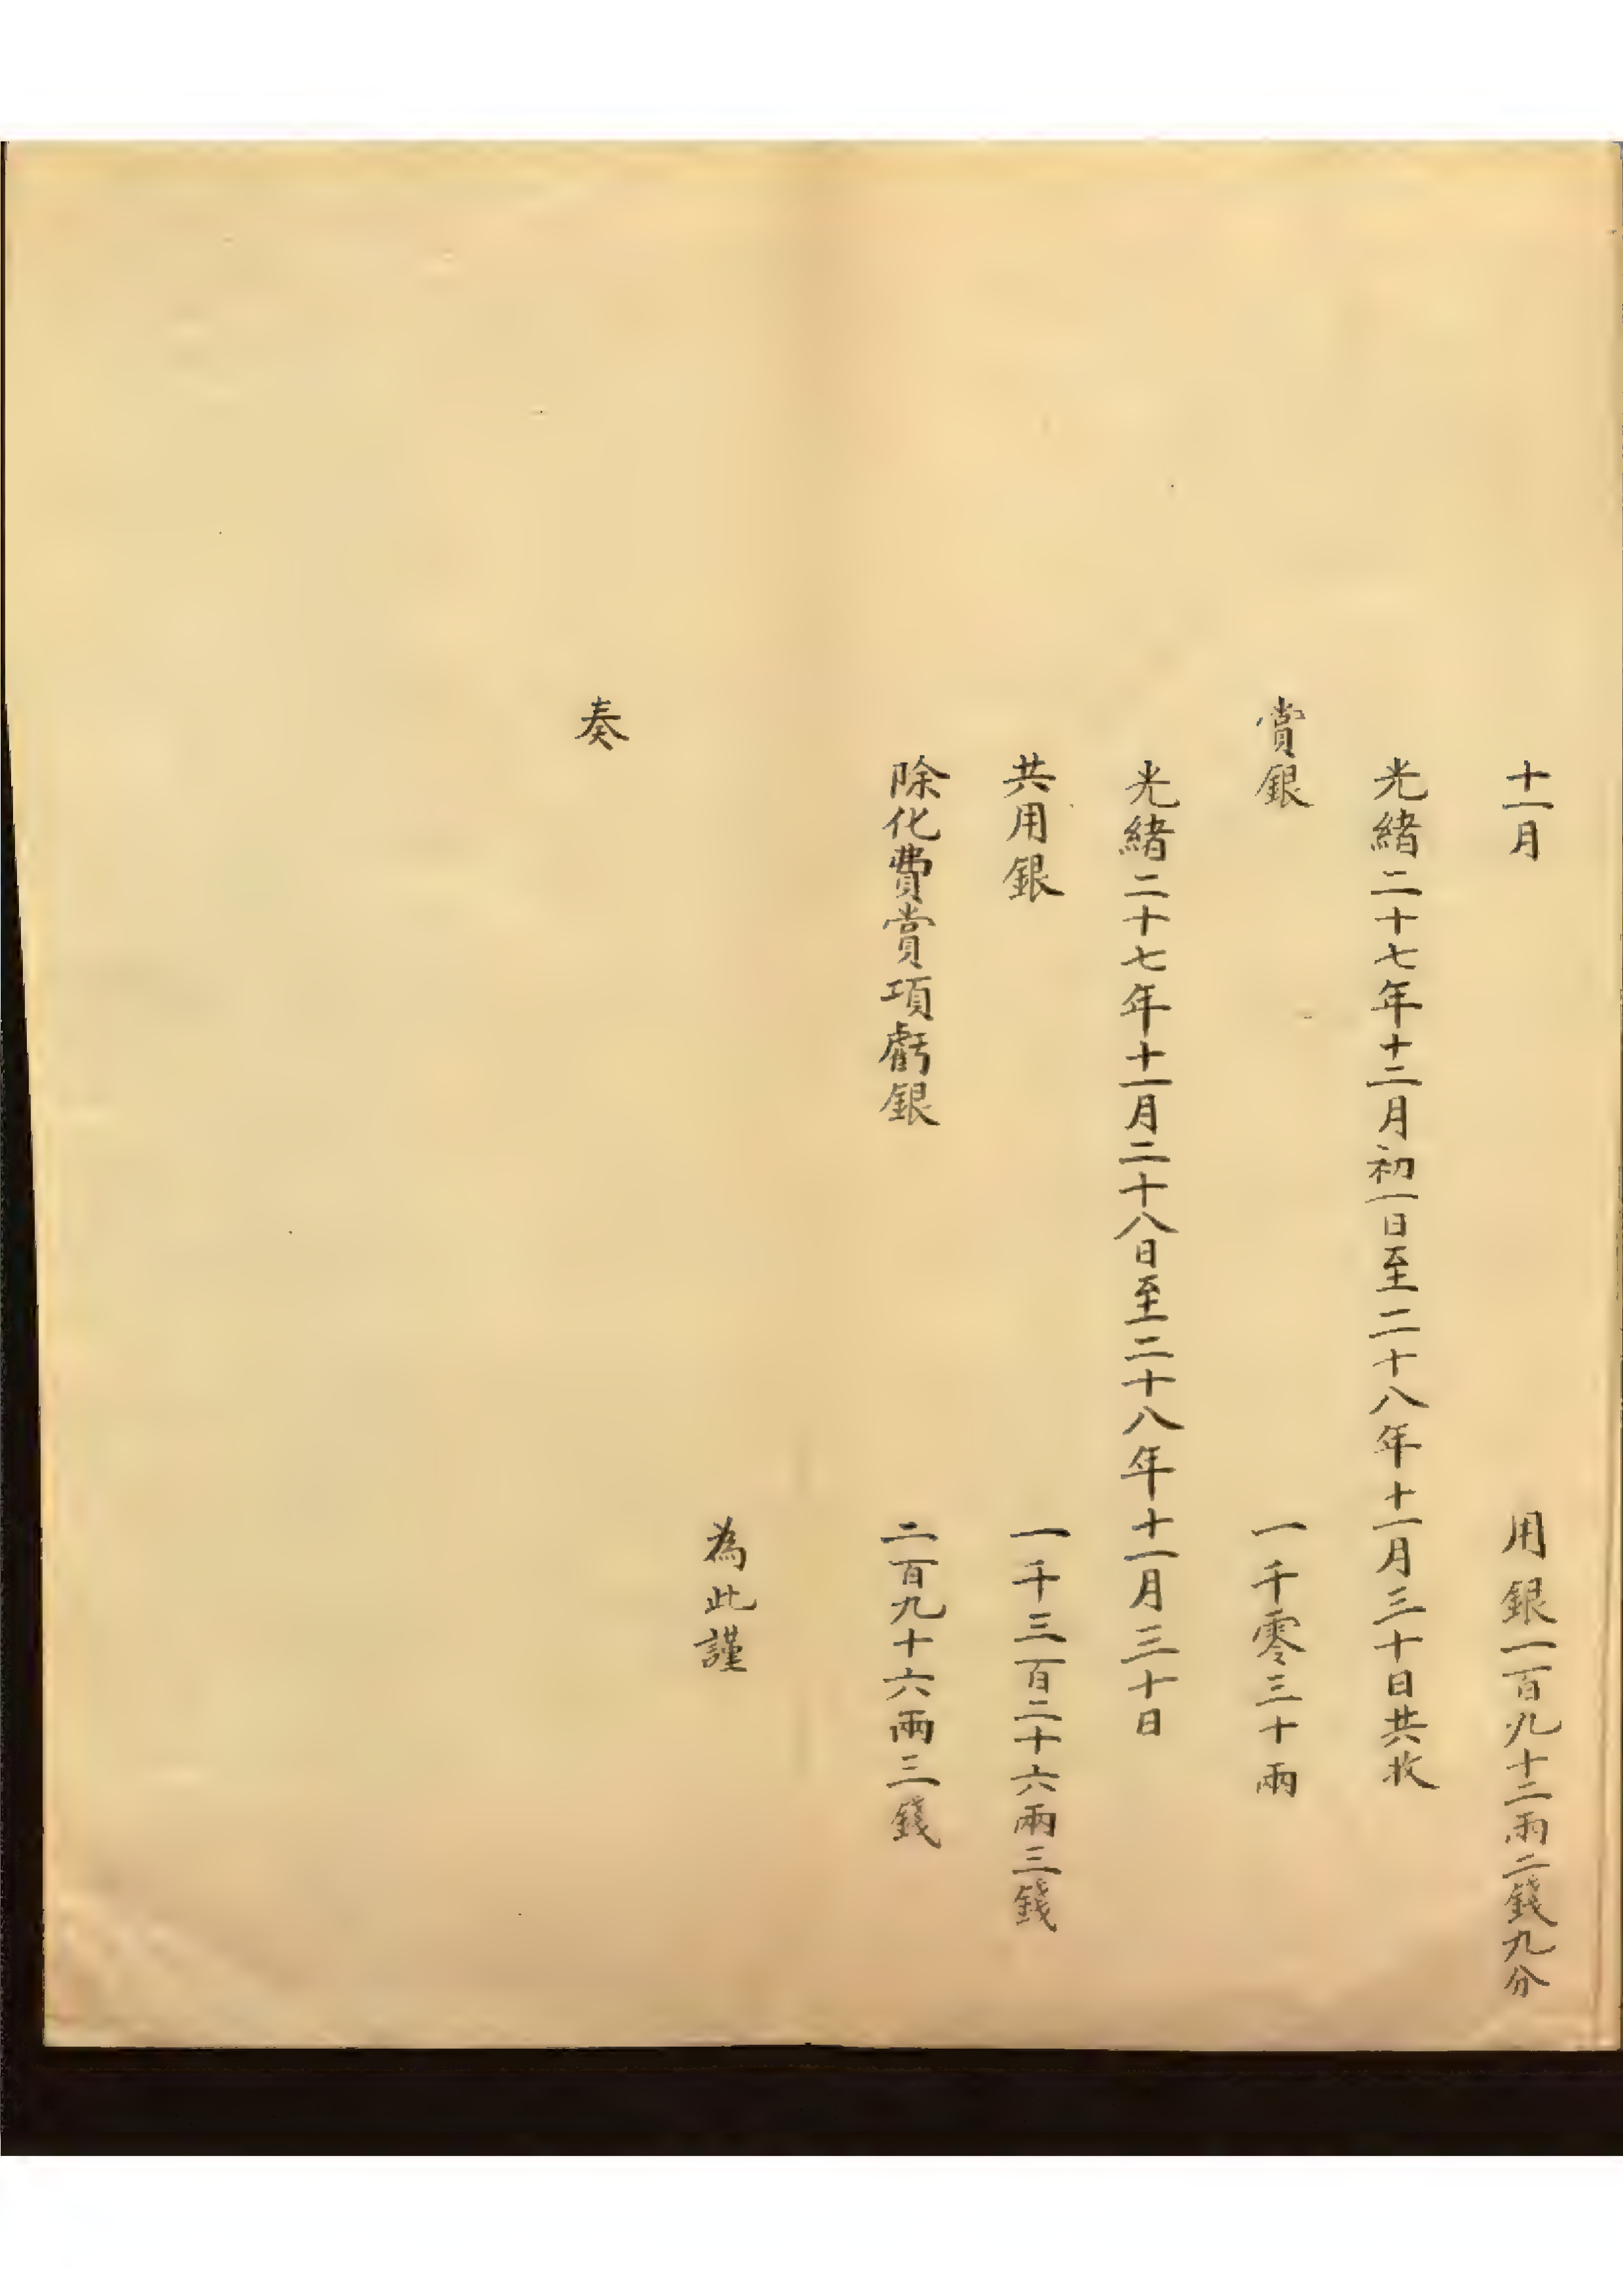 十一月　用銀一百九十二兩二錢九分
光緒二十七年十二月初一日至二十八年十一月三十日共收
賞銀　一千零三十兩
光緒二十七年十一月二十八日至二十八年十一月三十日
共用銀　一千三百二十六兩三錢
除化費賞項虧銀　二百九十六兩三錢
為此謹
奏